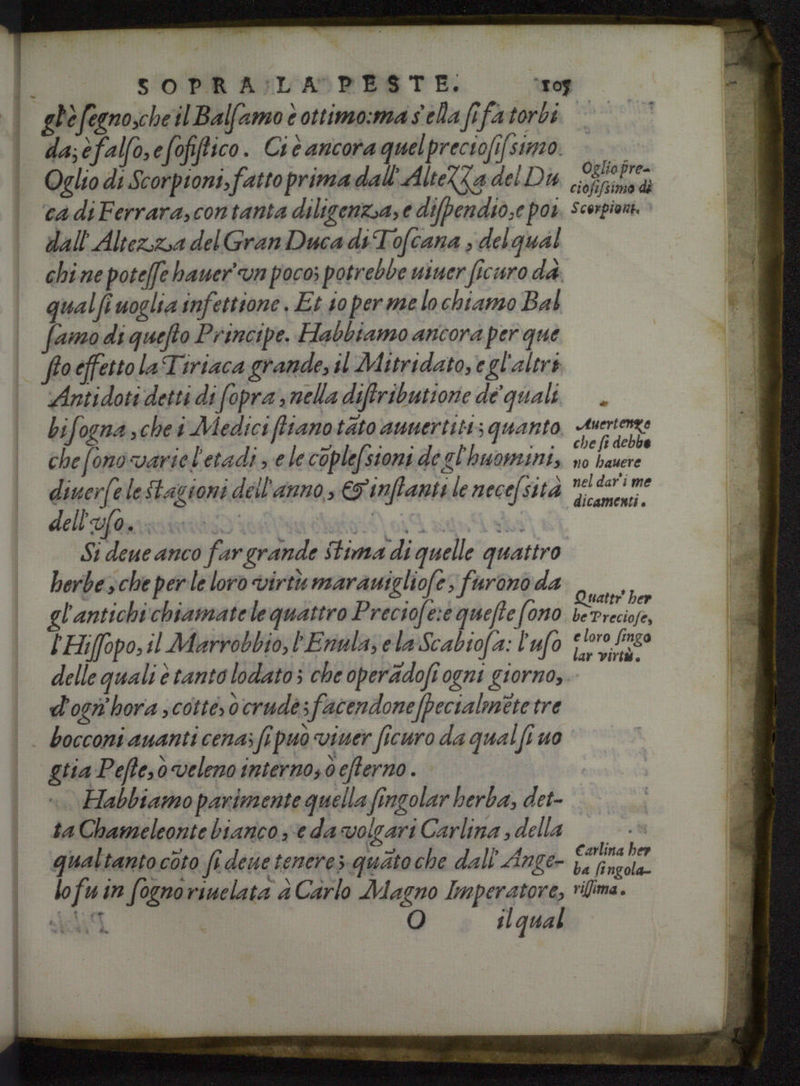 SOPRA LA PESTE. 105
gl'è segno, che il Balsamo è ottimo: ma s'ella si fa torbi
da; è falso, e sofistico. Ci è ancora quel preciosissimo
Oglio di Scorpioni, fatto prima dall'Altezza del Du
ca di Ferrara, con tanta diligenza, e dispendio, e poi
dall'Altezza del Gran Duca di Toscana, del qual
chi ne potesse hauer' vn poco; potrebbe uiuer sicuro da
qual si uoglia infettione. Et io per me lo chiamo Bal
samo di questo Principe. Habbiamo ancora per que
sto effetto la Tiriaca grande, il Mitridato, e gl'altri
Antidoti detti di sopra, nella distributione de' quali
bisogna, che i Medici stiano tãto auuertiti; quanto
che sono varie l'etadi, e le cõplessioni de gl'huomini,
diuerse le stagioni dell'anno, & instanti le necessità
dell'vso.
Si deue anco far grande stima di quelle quattro
herbe, che per le loro virtù marauigliose, furono da
gl'antichi chiamate le quattro Preciose: e queste sono
l'Hissopo, il Marrobbio, l'Enula, e la Scabiosa: l'uso
delle quali è tanto lodato; che operãdosi ogni giorno,
d'ogn'hora, cotte, ò crude; facendone specialmẽte tre
bocconi auanti cena; si può viuer sicuro da qual si uo
glia Peste, ò veleno interno, ò esterno.
Habbiamo parimente quella singolar herba, det-
ta Chameleonte bianco, e da volgari Carlina, della
qual tanto cõto si deue tenere; quãto che dall'Ange-
lo fu in sogno riuelata à Carlo Magno Imperatore,
O il qual
Oglio pre-
ciosissimo di
Scorpioni.
Auertenze
che si debbe
no hauere
nel dar' i me
dicamenti.
Quattr' her
be Preciose,
e loro singo
lar virtù.
Carlina her
ba singola-
rissima.